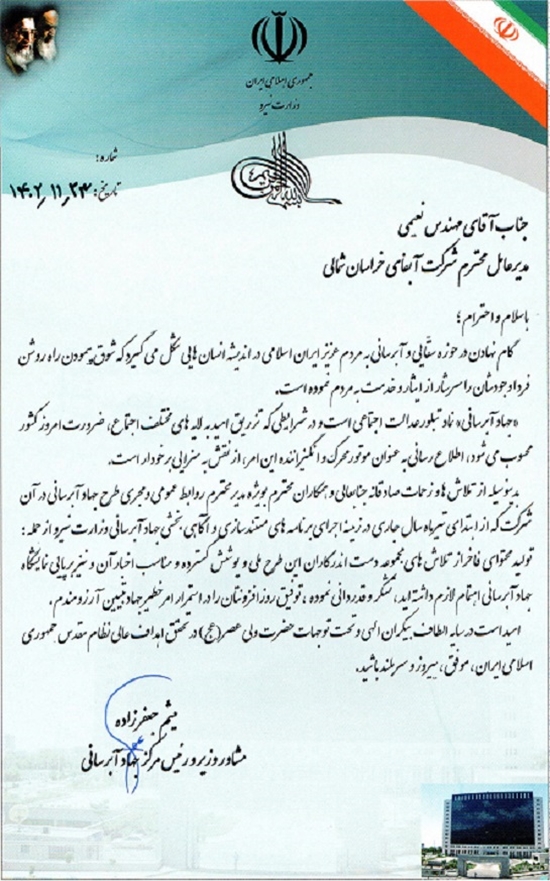 جمهوری اسلامی ایران
وزارت نیرو
شماره:
تاریخ: ۱۴۰۲٫۱۱٫۲۴
جناب آقای مهندس نعیمی
مدیرعامل محترم شرکت آبفای خراسان شمالی
باسلام و احترام؛
گام نهادن در حوزه سقّایی و آبرسانی به مردم عزیز ایران اسلامی در اندیشه انسان هایی شکل می گیرد که شوق پیمودن راه روشن
فردا وجودشان را سرشار از ایثار و خدمت به مردم نموده است.
«جهاد آبرسانی» نماد تبلور عدالت اجتماعی است و در شرایطی که تزریق امید به لایه های مختلف اجتماع، ضرورت امروز کشور
محسوب می شود، اطلاع رسانی به عنوان موتور محرک و انگیزاننده این امر، از نقش به سزایی برخوردار است.
بدینوسیله از تلاش ها و زحمات صادقانه جنابعالی و همکاران محترم بویژه مدیر محترم روابط عمومی و مجری طرح جهاد آبرسانی در آن
شرکت که از ابتدای تیرماه سال جاری در زمینه اجرای برنامه های مستندسازی و آگاهی بخشی جهاد آبرسانی وزارت نیرو از جمله:
تولید محتوای فاخر از تلاش های مجموعه دست اندرکاران این طرح ملی و پوشش گسترده و مناسب اخبار آن و نیز برپایی نمایشگاه
جهاد آبرسانی اهتمام لازم داشته اید، تشکر و قدردانی نموده، توفیق روزافزونتان را در استمرار امر خطیر جهاد تبیین آرزومندم.
امید است در سایه الطاف بیکران الهی و تحت توجهات حضرت ولی عصر(عج) در تحقق اهداف عالی نظام مقدس جمهوری
اسلامی ایران، موفق، پیروز و سربلند باشید.
میثم جعفرزاده
مشاور وزیر و رئیس مرکز جهاد آبرسانی